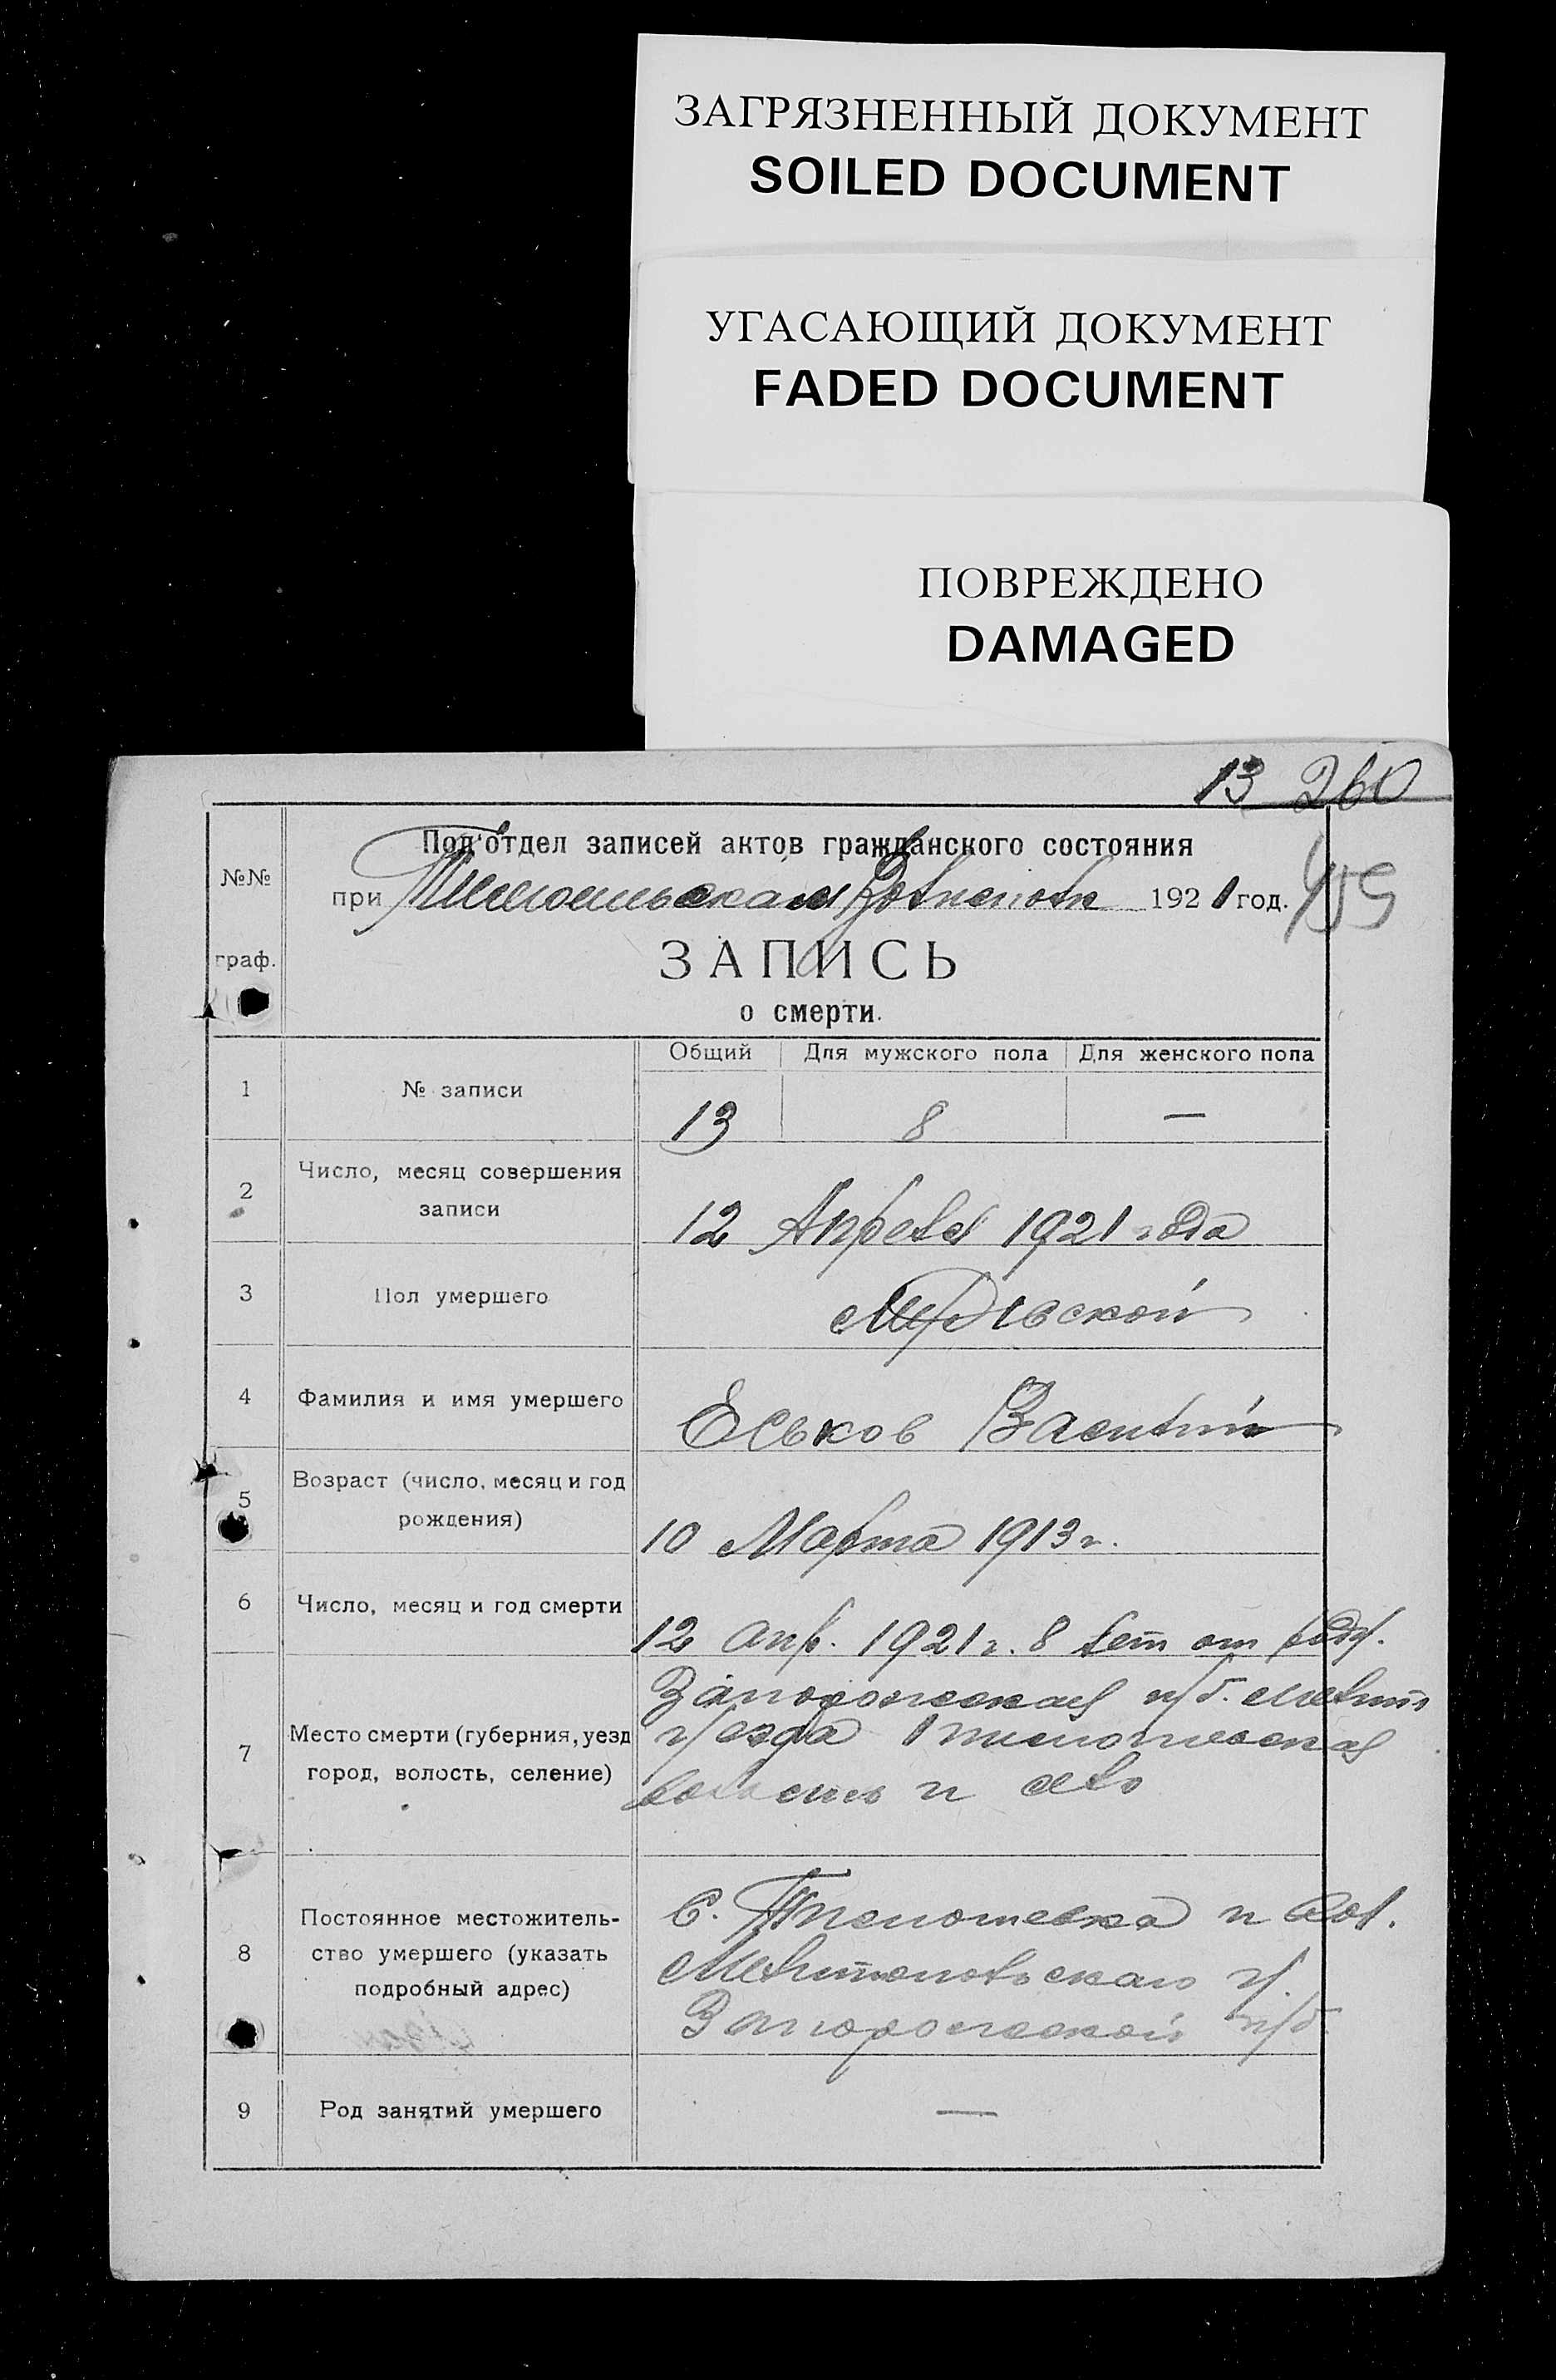 ЗАГРЯЗНЕННЫЙ ДОКУМЕНТ
SOILED DOCUMENT
УГАСАЮЩИЙ ДОКУМЕНТ
FADED DOCUMENT
ПОВРЕЖДЕНО
DAMAGED
13 260
Под'отдел записей актов гражданского состояния
№№
при 1921 год.
граф.
ЗАПИСЬ
о смерти.
Общий Для мужского пола Для женского пола
1 № записи
13 8 —
Число, месяц совершения
2
записи
12 Апреля 1921 года
3 Пол умершего
Мужской
4 Фамилия и имя умершего
Еськов Василий
Возраст (число, месяц и год
5
рождения)
10 Марта 1913 г.
6 Число, месяц и год смерти
12 Апр. 1921 г. 8 лет от
Запорожская губ. Мелит
Место смерти (губерния, уезд
уезда
7
город, волость, селение)
волость и село
С. и вол.
Постоянное местожитель-
8 ство умершего (указать
Мелитопольскаго у.
подробный адрес)
Запорожской губ.
9 Род занятий умершего —